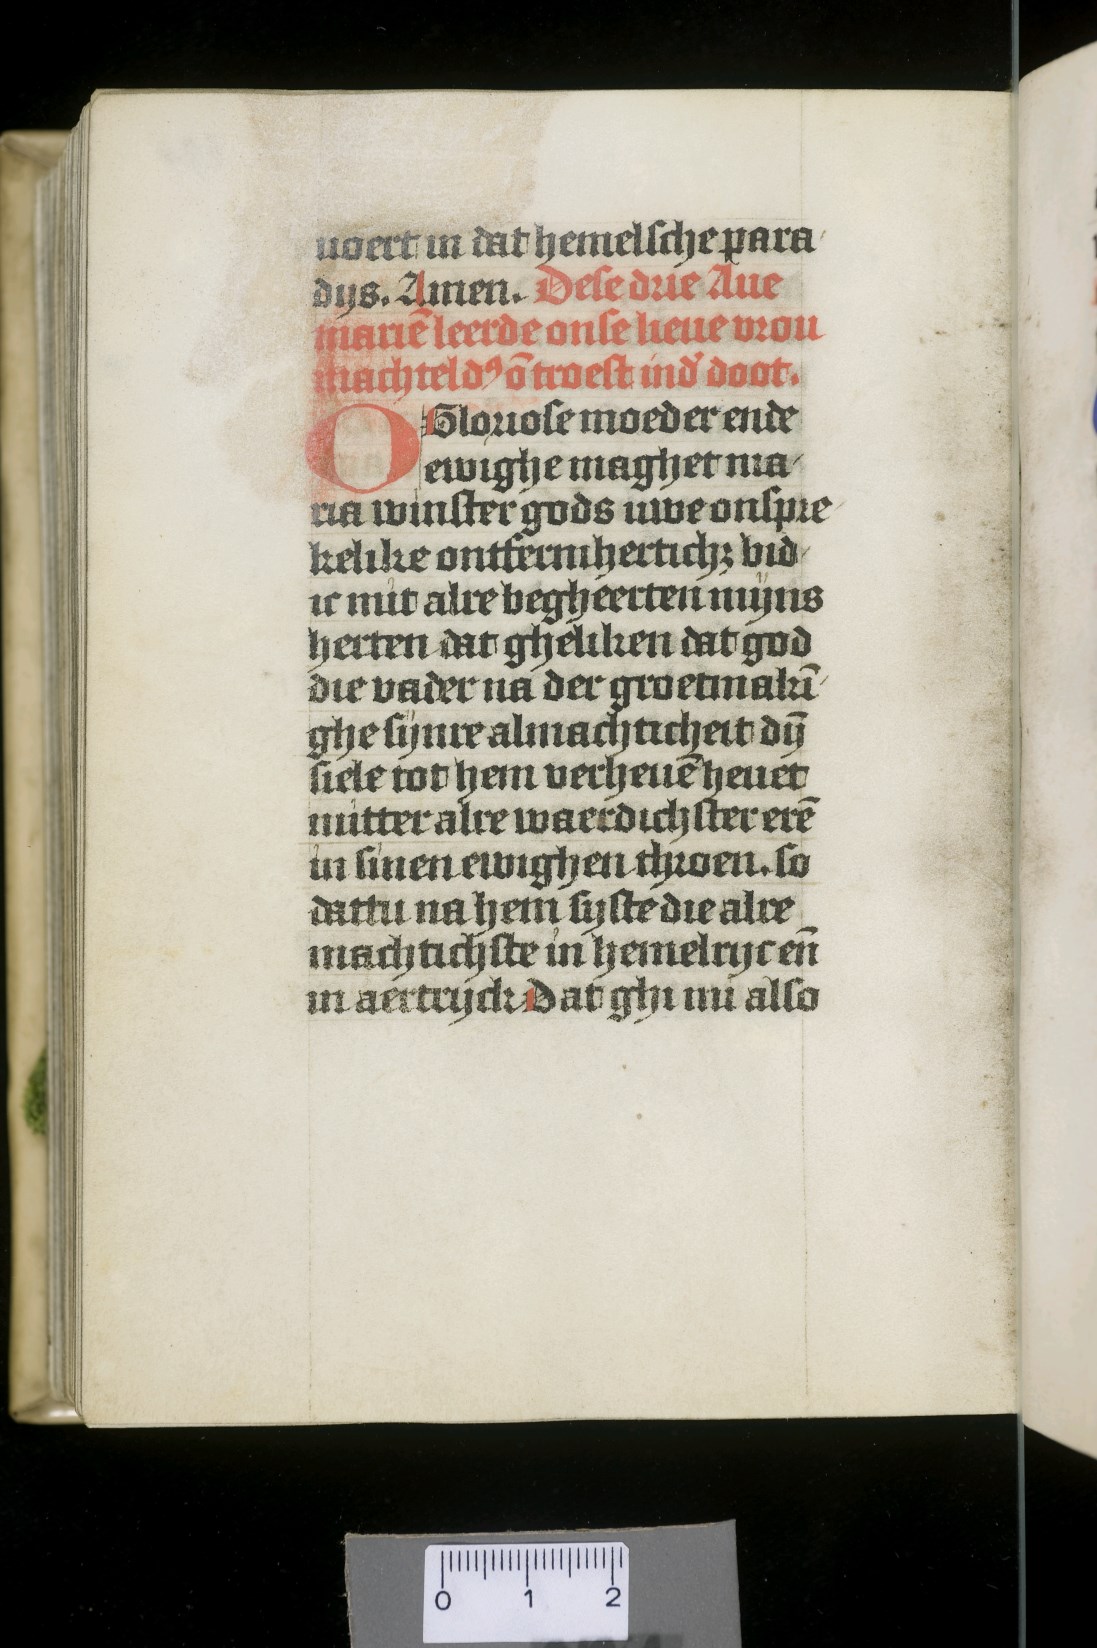 uoert in dat hemelsche para
dys. Amen. Dese drie Aue
mariē leerde onse lieue vrou
machteldꝰ ō troest ind' doot.
O Gloriose moeder ende
ewighe maghet ma
ria winster gods uwe onspre
kelike ontfermhertichꝫ bid
ic mit alre begheerten mijns
herten dat gheliken dat god
die vader na der groetmaki̅
ghe sijnre almachticheit dij̅
siele tot hem verheuē heuet
mitter alre waerdichster erē
in sinen ewighen throen. so
dattu na hem syste die alre
machtichste in hemelryc en̅
in aertryck Dat ghi mi also
0 1 2